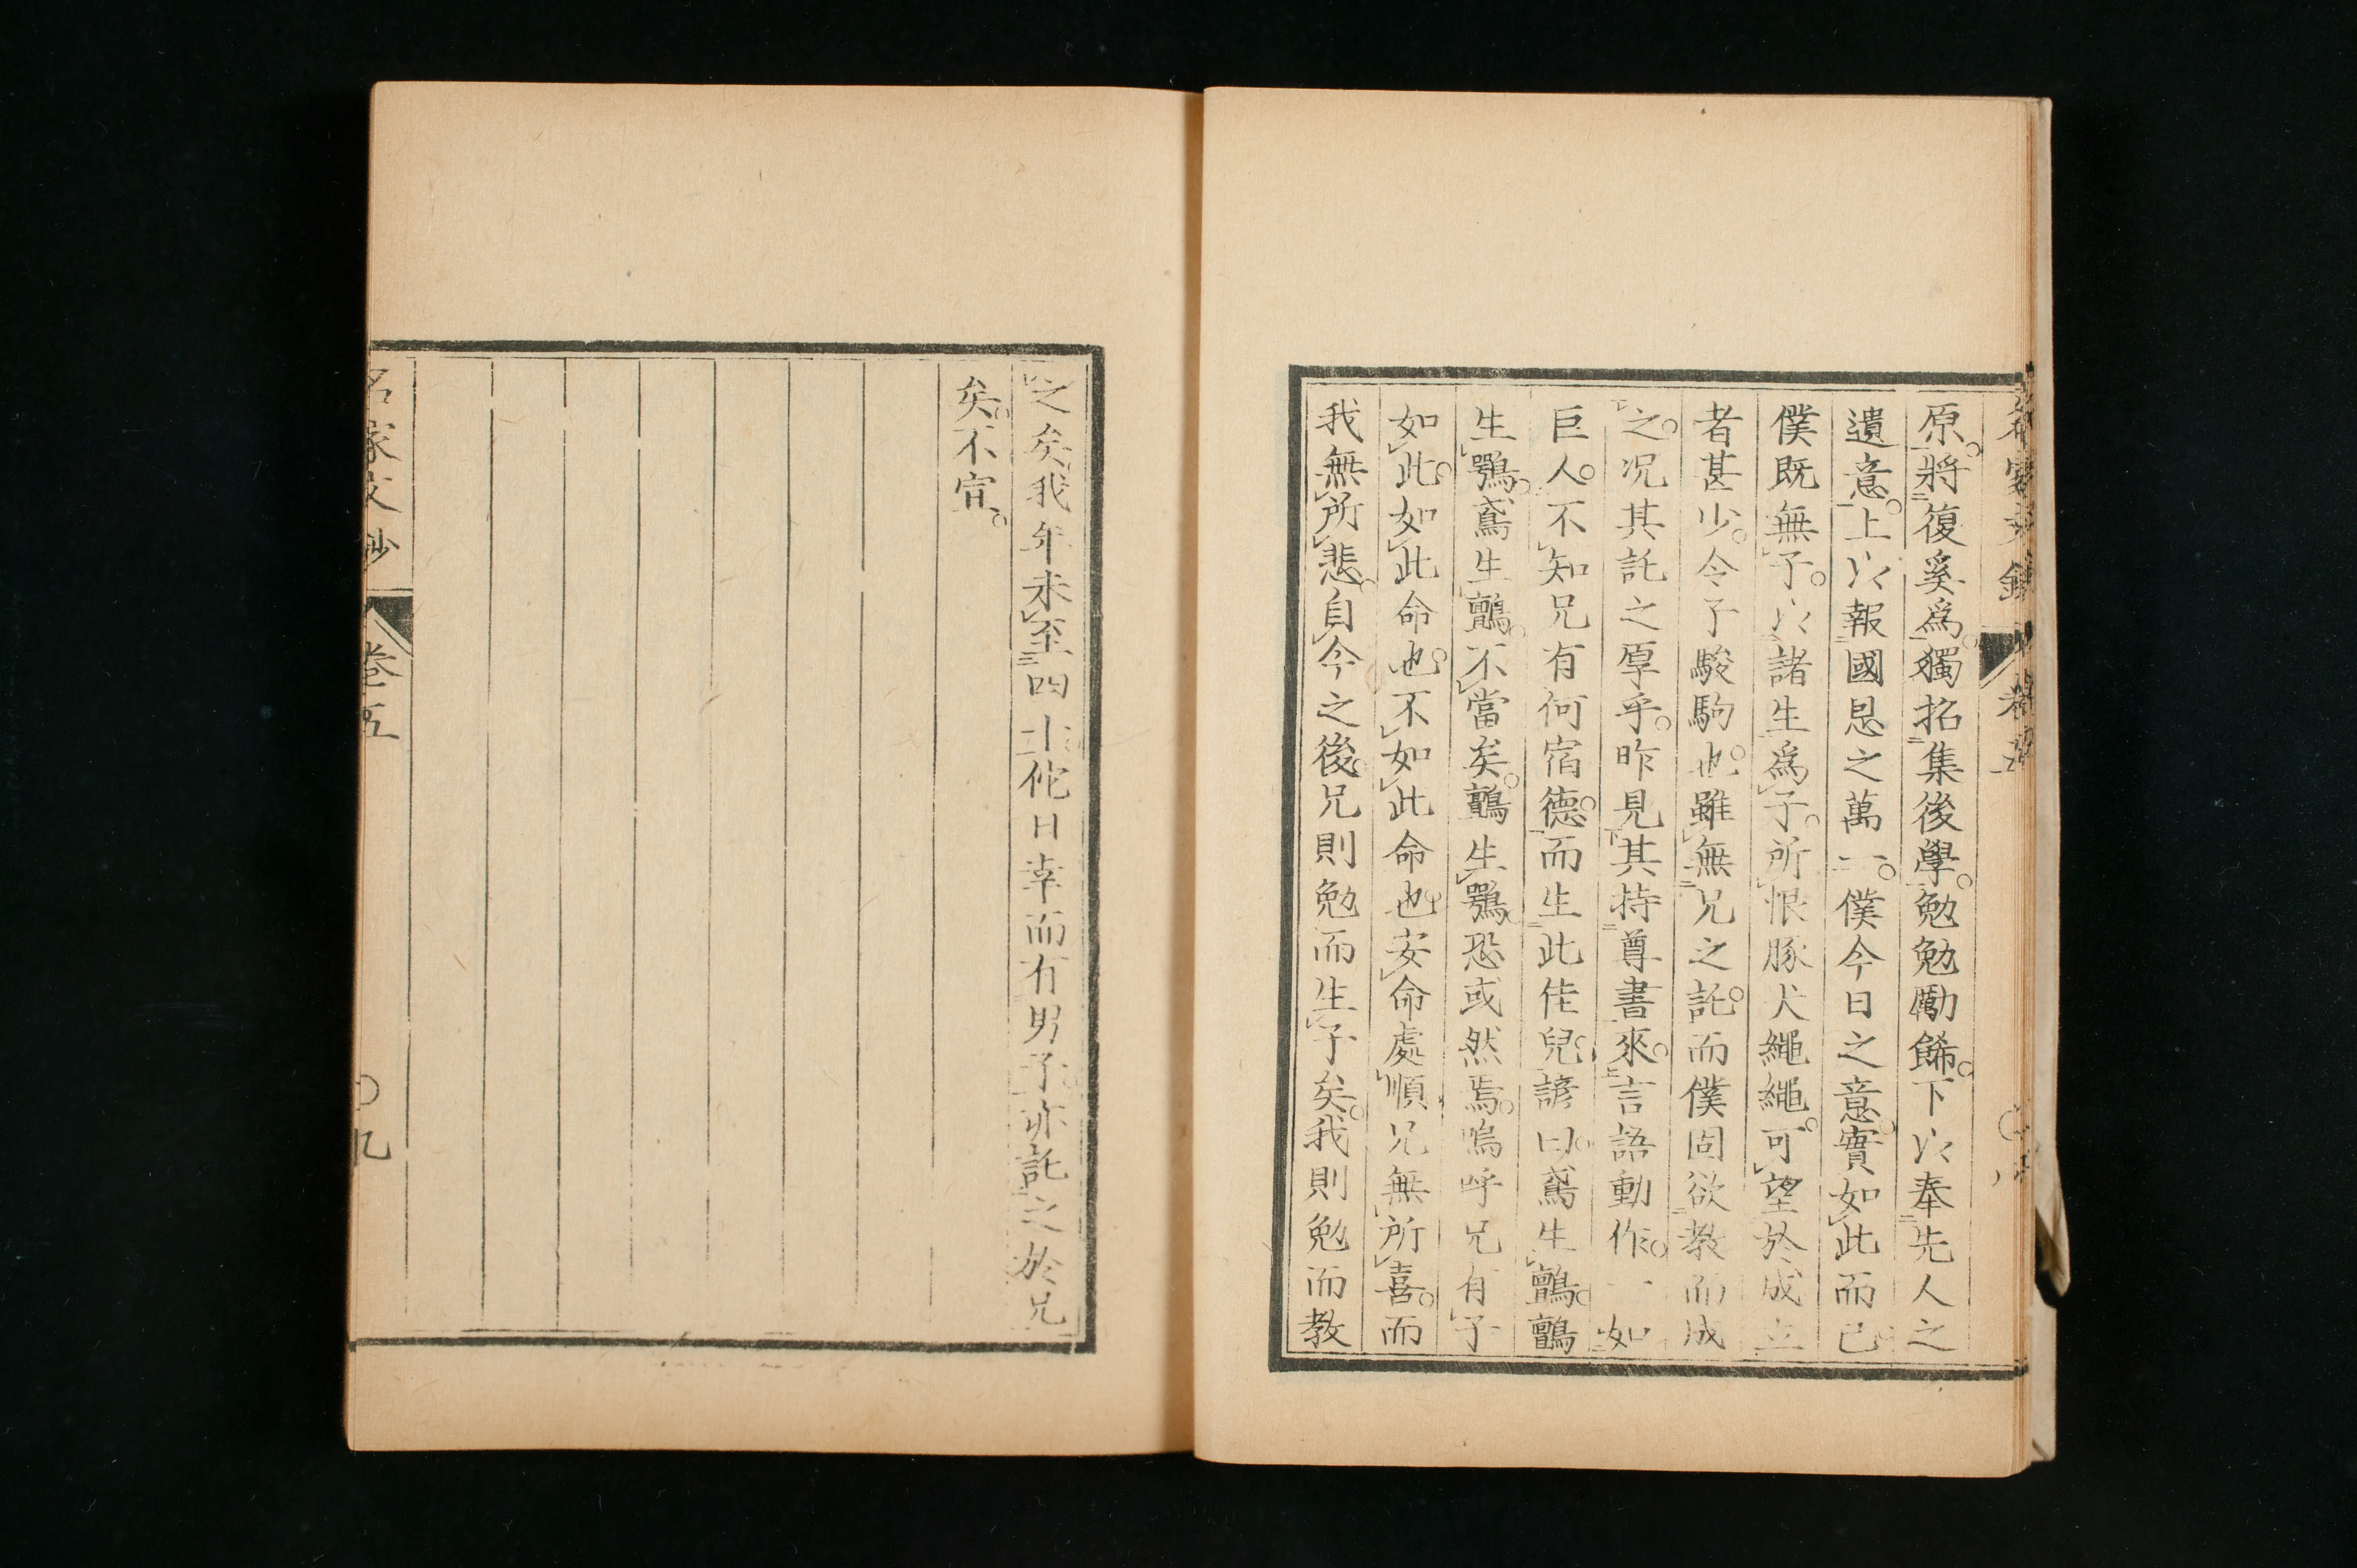 名家文鈔 卷五
原。將復奚爲。獨招集後學。勉勉勵餙。下以奉先人之
遺意。上以報國恩之萬一。僕今日之意。實如此而已
僕既無子。以諸生爲子。所恨豚犬繩繩。可望於成立
者甚少。令子駿駒也。雖無兄之託。而僕固欲教而成
之。況其託之厚乎。昨見其持尊書來。言語動作。一如
巨人。不知兄有何宿德。而生此佳兒。諺曰。鳶生鸇。鸇
生鶚。鳶生鸇。不當矣。鸇生鶚。恐或然焉。嗚呼兄有子
如此。如此命也。不如此命也。安命處順。兄無所喜。而
我無所悲。自今之後。兄則勉而生子矣。我則勉而教
之矣。我年未至四十。佗日幸而有男子。亦託之於兄
矣。不宣。
名家文鈔 卷五 〇九